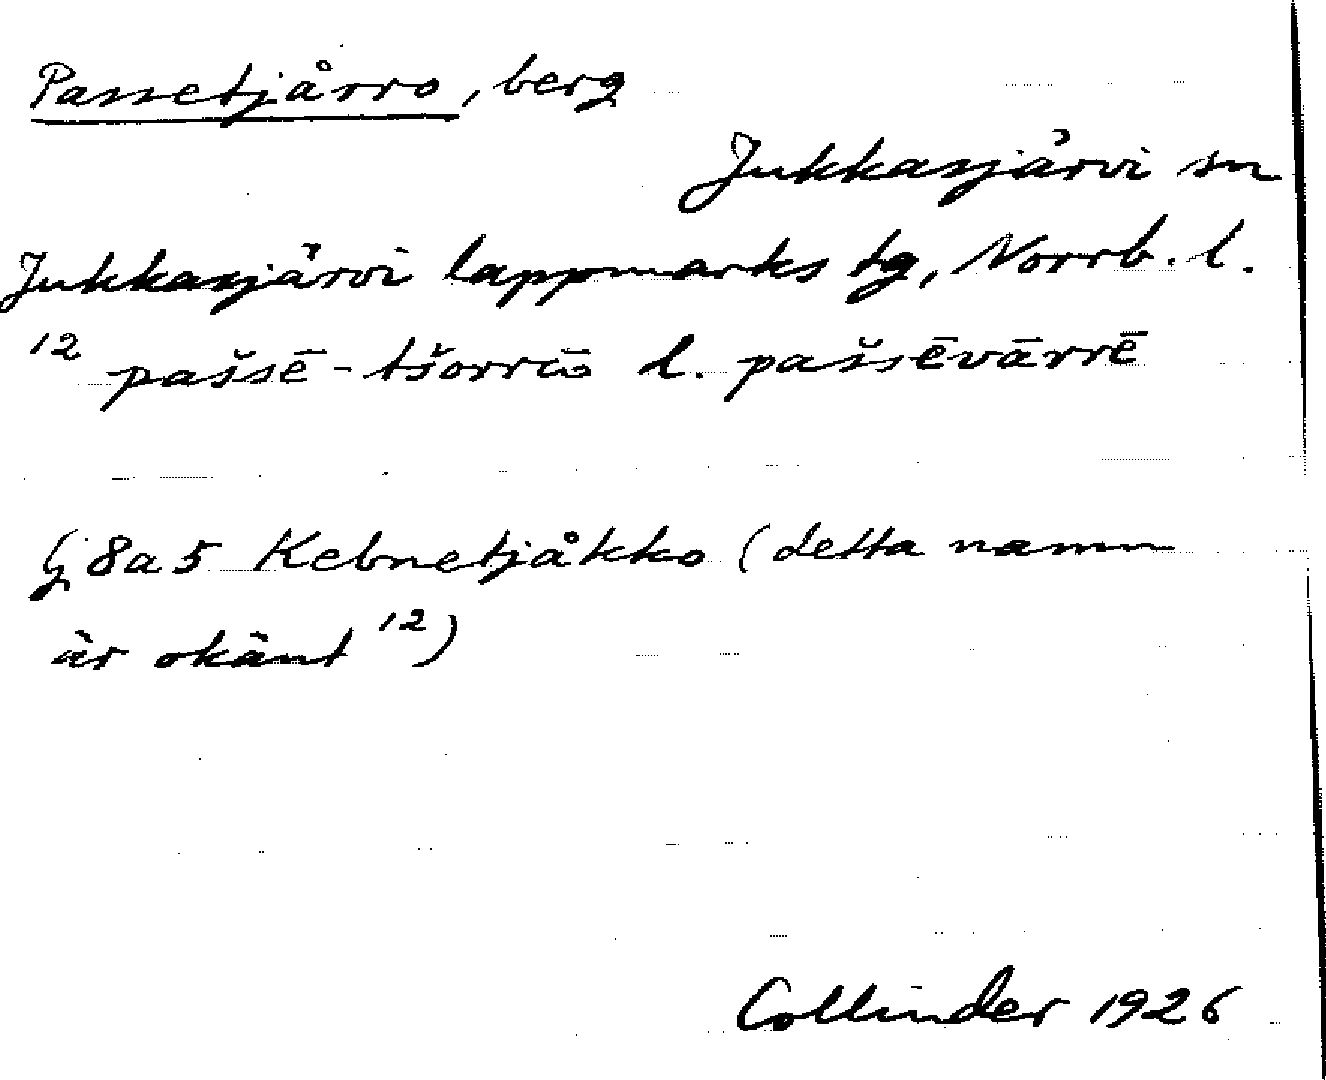 Passetjårro, berg
Jukkasjärvi sn
Jukkasjärvi lappmarks tg, Norrb. l.
12 pašsē-tšorrō l. pašsēvārrē
G 8a5 Kebnetjåkko (detta namn
är okänt 12)
Collinder 1926